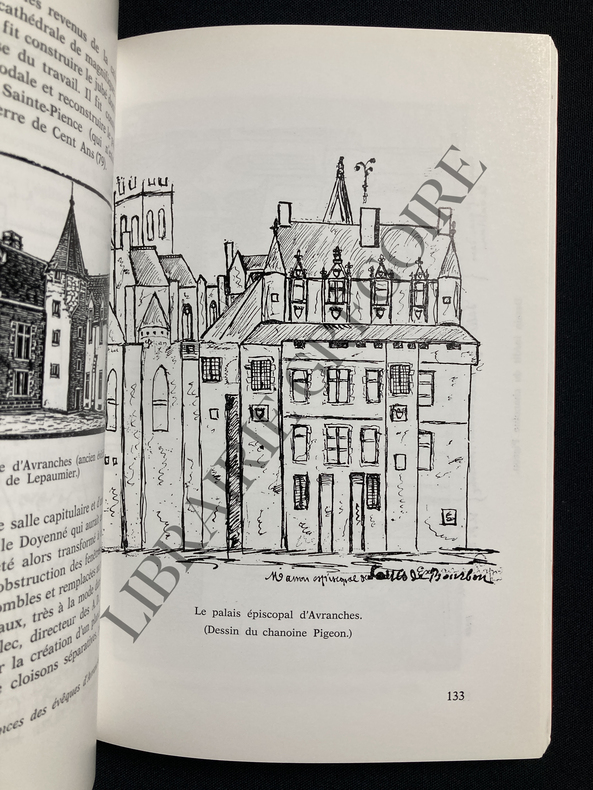 es revenus de la
cathédrale de magnifi
fit construire le jubé
se du travail. Il fit
odale et reconstruire le
Sainte-Pience (qui
erre de Cent Ans (79).
e d'Avranches (ancien
de Lepaumier.)
e salle capitulaire et d'
le Doyenné qui aurai
été alors transformé
obstruction des fenê
ombles et remplacées
aux, très à la mode d
lec, directeur des A
r la création d'un
e cloisons séparatives
ences des évêques d'
LIBRAIRIE GREGOIRE
Maison episcopal de Louis de Bourbon
Le palais épiscopal d'Avranches.
(Dessin du chanoine Pigeon.)
133